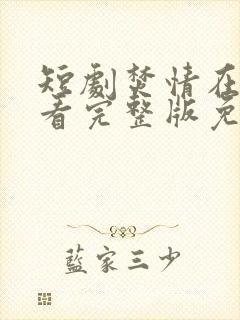 短劇焚情在
看完整版免
藍家三少